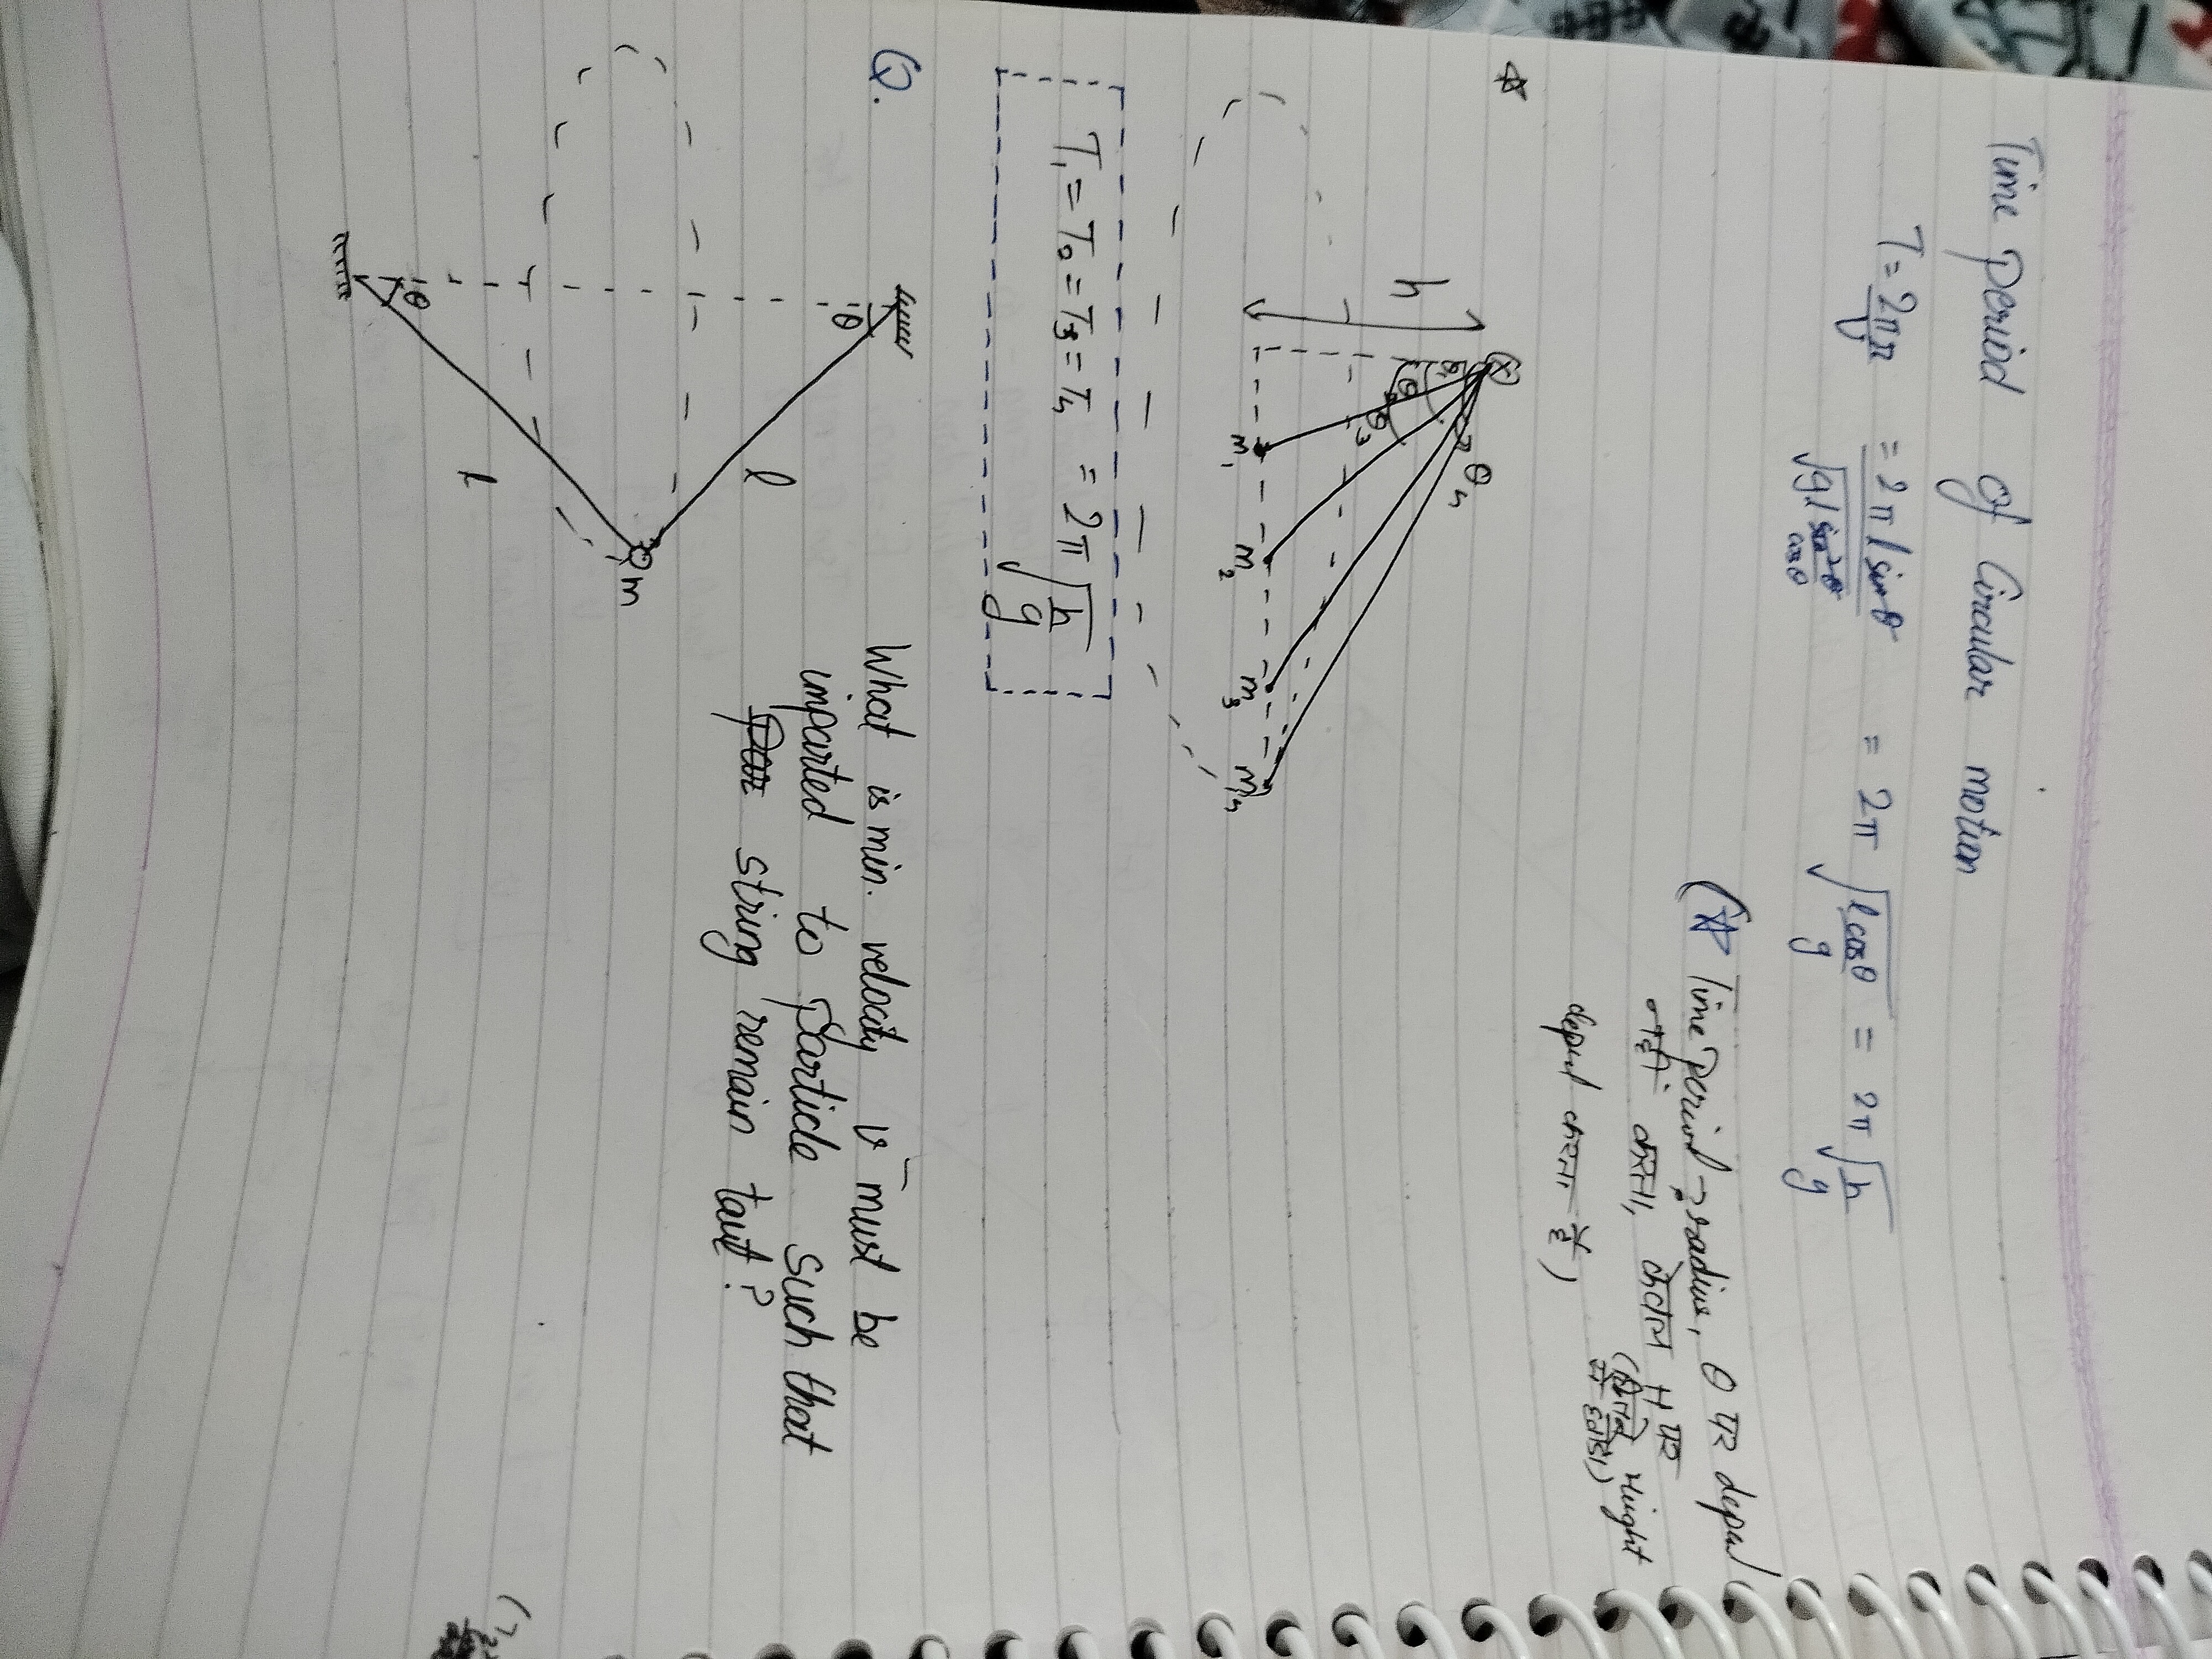 Time Period of Circular motion
T = 2πr/v = 2πl sinθ/√(gl sin²θ/cosθ) = 2π √(l cosθ/g) = 2π √(h/g)
(☆ Time Period → radius, θ पर depend
नहीं करता, केवल H पर
depend करता है)
(height
h
θ₁
θ₃
θ₄
m₁ m₂ m₃ m₄
T₁ = T₂ = T₃ = T₄ = 2π √(h/g)
Q.
What is min. velocity v must be
imparted to Particle such that
string remain taut?
θ
l
m
θ
l